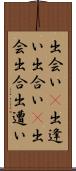 出会い出逢
い出合い出
会出合出遭い